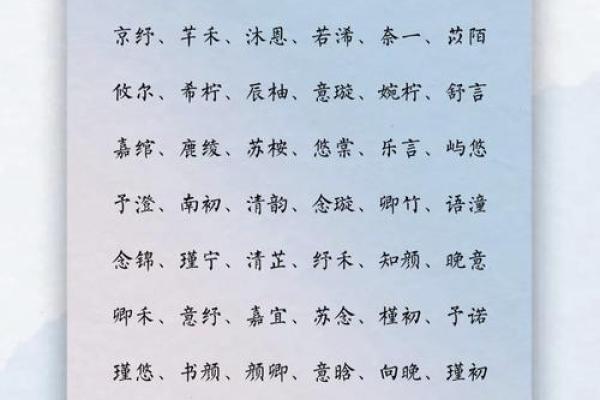 京纾、芊禾、沐恩、若浠、奈一、苡陌
攸尔、希柠、辰柚、意璇、婉柠、舒言
嘉绾、鹿绫、苏桉、悠棠、乐言、屿悠
予澄、南初、清韵、念璇、卿竹、语潼
念锦、瑾宁、清芷、纾禾、知颜、晚意
卿禾、意纾、嘉宜、苏念、槿初、予诺
瑾悠、书颜、颜卿、意晗、向晚、瑾初